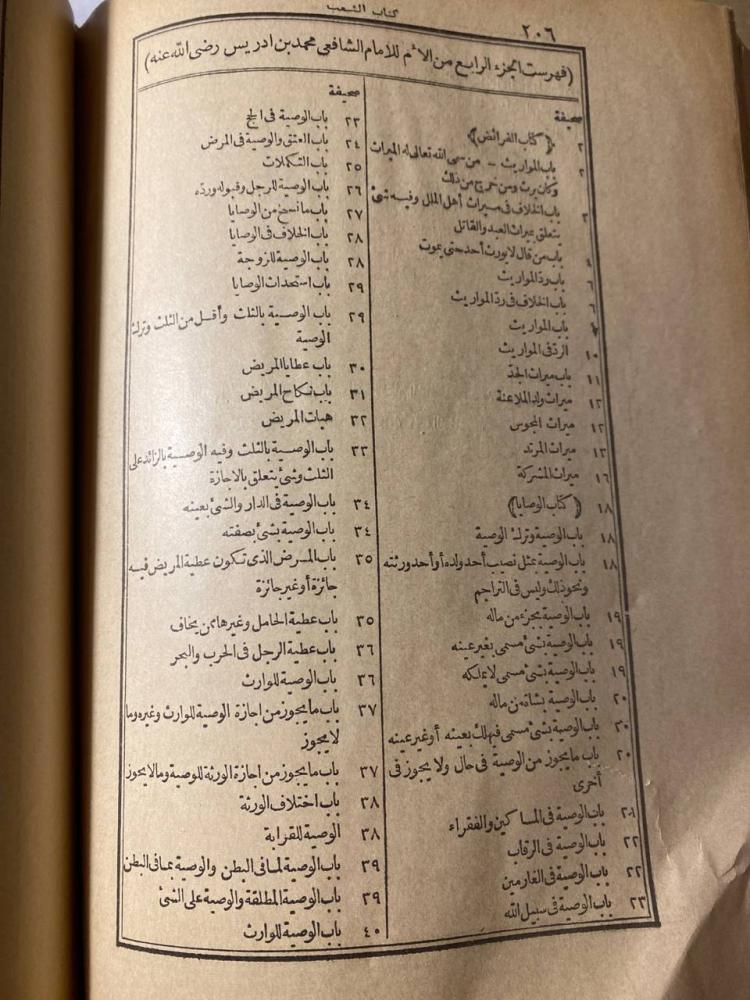 كتاب الشعب
٢٠٦
(فهرست الجزء الرابع من الأم للامام الشافعي محمد بن ادريس رضى الله عنه)
صحيفة
٢ ﴿كتاب الفرائض﴾
٢ باب المواريث - من سمى الله تعالى له الميراث
وكان يرث ومن خرج من ذلك
٣ باب الخلاف فى ميراث أهل الملل وفيه شئ
يتعلق بميراث العبد والقاتل
٤ باب من قال لا يورث أحد حتى يموت
٦ باب رد المواريث
٦ باب الخلاف فى رد المواريث
باب المواريث
١٠ الرد فى المواريث
١١ باب ميراث الجد
١٢ ميراث ولد الملاعنة
١٢ ميراث المجوس
١٣ ميراث المرتد
١٦ ميراث المشركة
١٨ ﴿كتاب الوصايا﴾
١٨ باب الوصية وترك الوصية
١٨ باب الوصية بمثل نصيب أحد ولده أو أحد ورثته
ونحو ذلك وليس فى التراجم
١٩ باب الوصية بجزء من ماله
١٩ باب الوصية بشئ مسمى بغير عينه
١٩ باب الوصية بشئ مسمى لا يملكه
٢٠ باب الوصية بشاة من ماله
٢٠ باب الوصية بشئ مسمى فيهلك بعينه أو غير عينه
٢٠ باب ما يجوز من الوصية فى حال ولا يجوز فى
أخرى
٢١ باب الوصية فى المساكين والفقراء
٢٢ باب الوصية فى الرقاب
٢٢ باب الوصية فى الغارمين
٢٣ باب الوصية فى سبيل الله
صحيفة
٢٣ باب الوصية فى الحج
٢٤ باب العتق والوصية فى المرض
٢٥ باب التكملات
٢٦ باب الوصية للرجل وقبوله ورده
٢٧ باب ما نسخ من الوصايا
٢٨ باب الخلاف فى الوصايا
٢٨ باب الوصية للزوجة
٢٩ باب استحداث الوصايا
٢٩ باب الوصية بالثلث وأقل من الثلث وترك
الوصية
٣٠ باب عطايا المريض
٣١ باب نكاح المريض
٣٢ هبات المريض
٣٣ باب الوصية بالثلث وفيه الوصية بالزائد على
الثلث وشئ يتعلق بالاجازة
٣٤ باب الوصية فى الدار والشئ بعينه
٣٤ باب الوصية بشئ بصفته
٣٥ باب المرض الذى تكون عطية المريض فيه
جائزة أو غير جائزة
٣٥ باب عطية الحامل وغيرها ممن يخاف
٣٦ باب عطية الرجل فى الحرب والبحر
٣٦ باب الوصية للوارث
٣٧ باب ما يجوز من اجازة الوصية للوارث وغيره وما
لا يجوز
٣٧ باب ما يجوز من اجازة الورثة للوصية وما لا يجوز
٣٨ باب اختلاف الورثة
٣٨ الوصية للقرابة
٣٩ باب الوصية لما فى البطن والوصية بما فى البطن
٣٩ باب الوصية المطلقة والوصية على الشئ
٤٠ باب الوصية للوارث